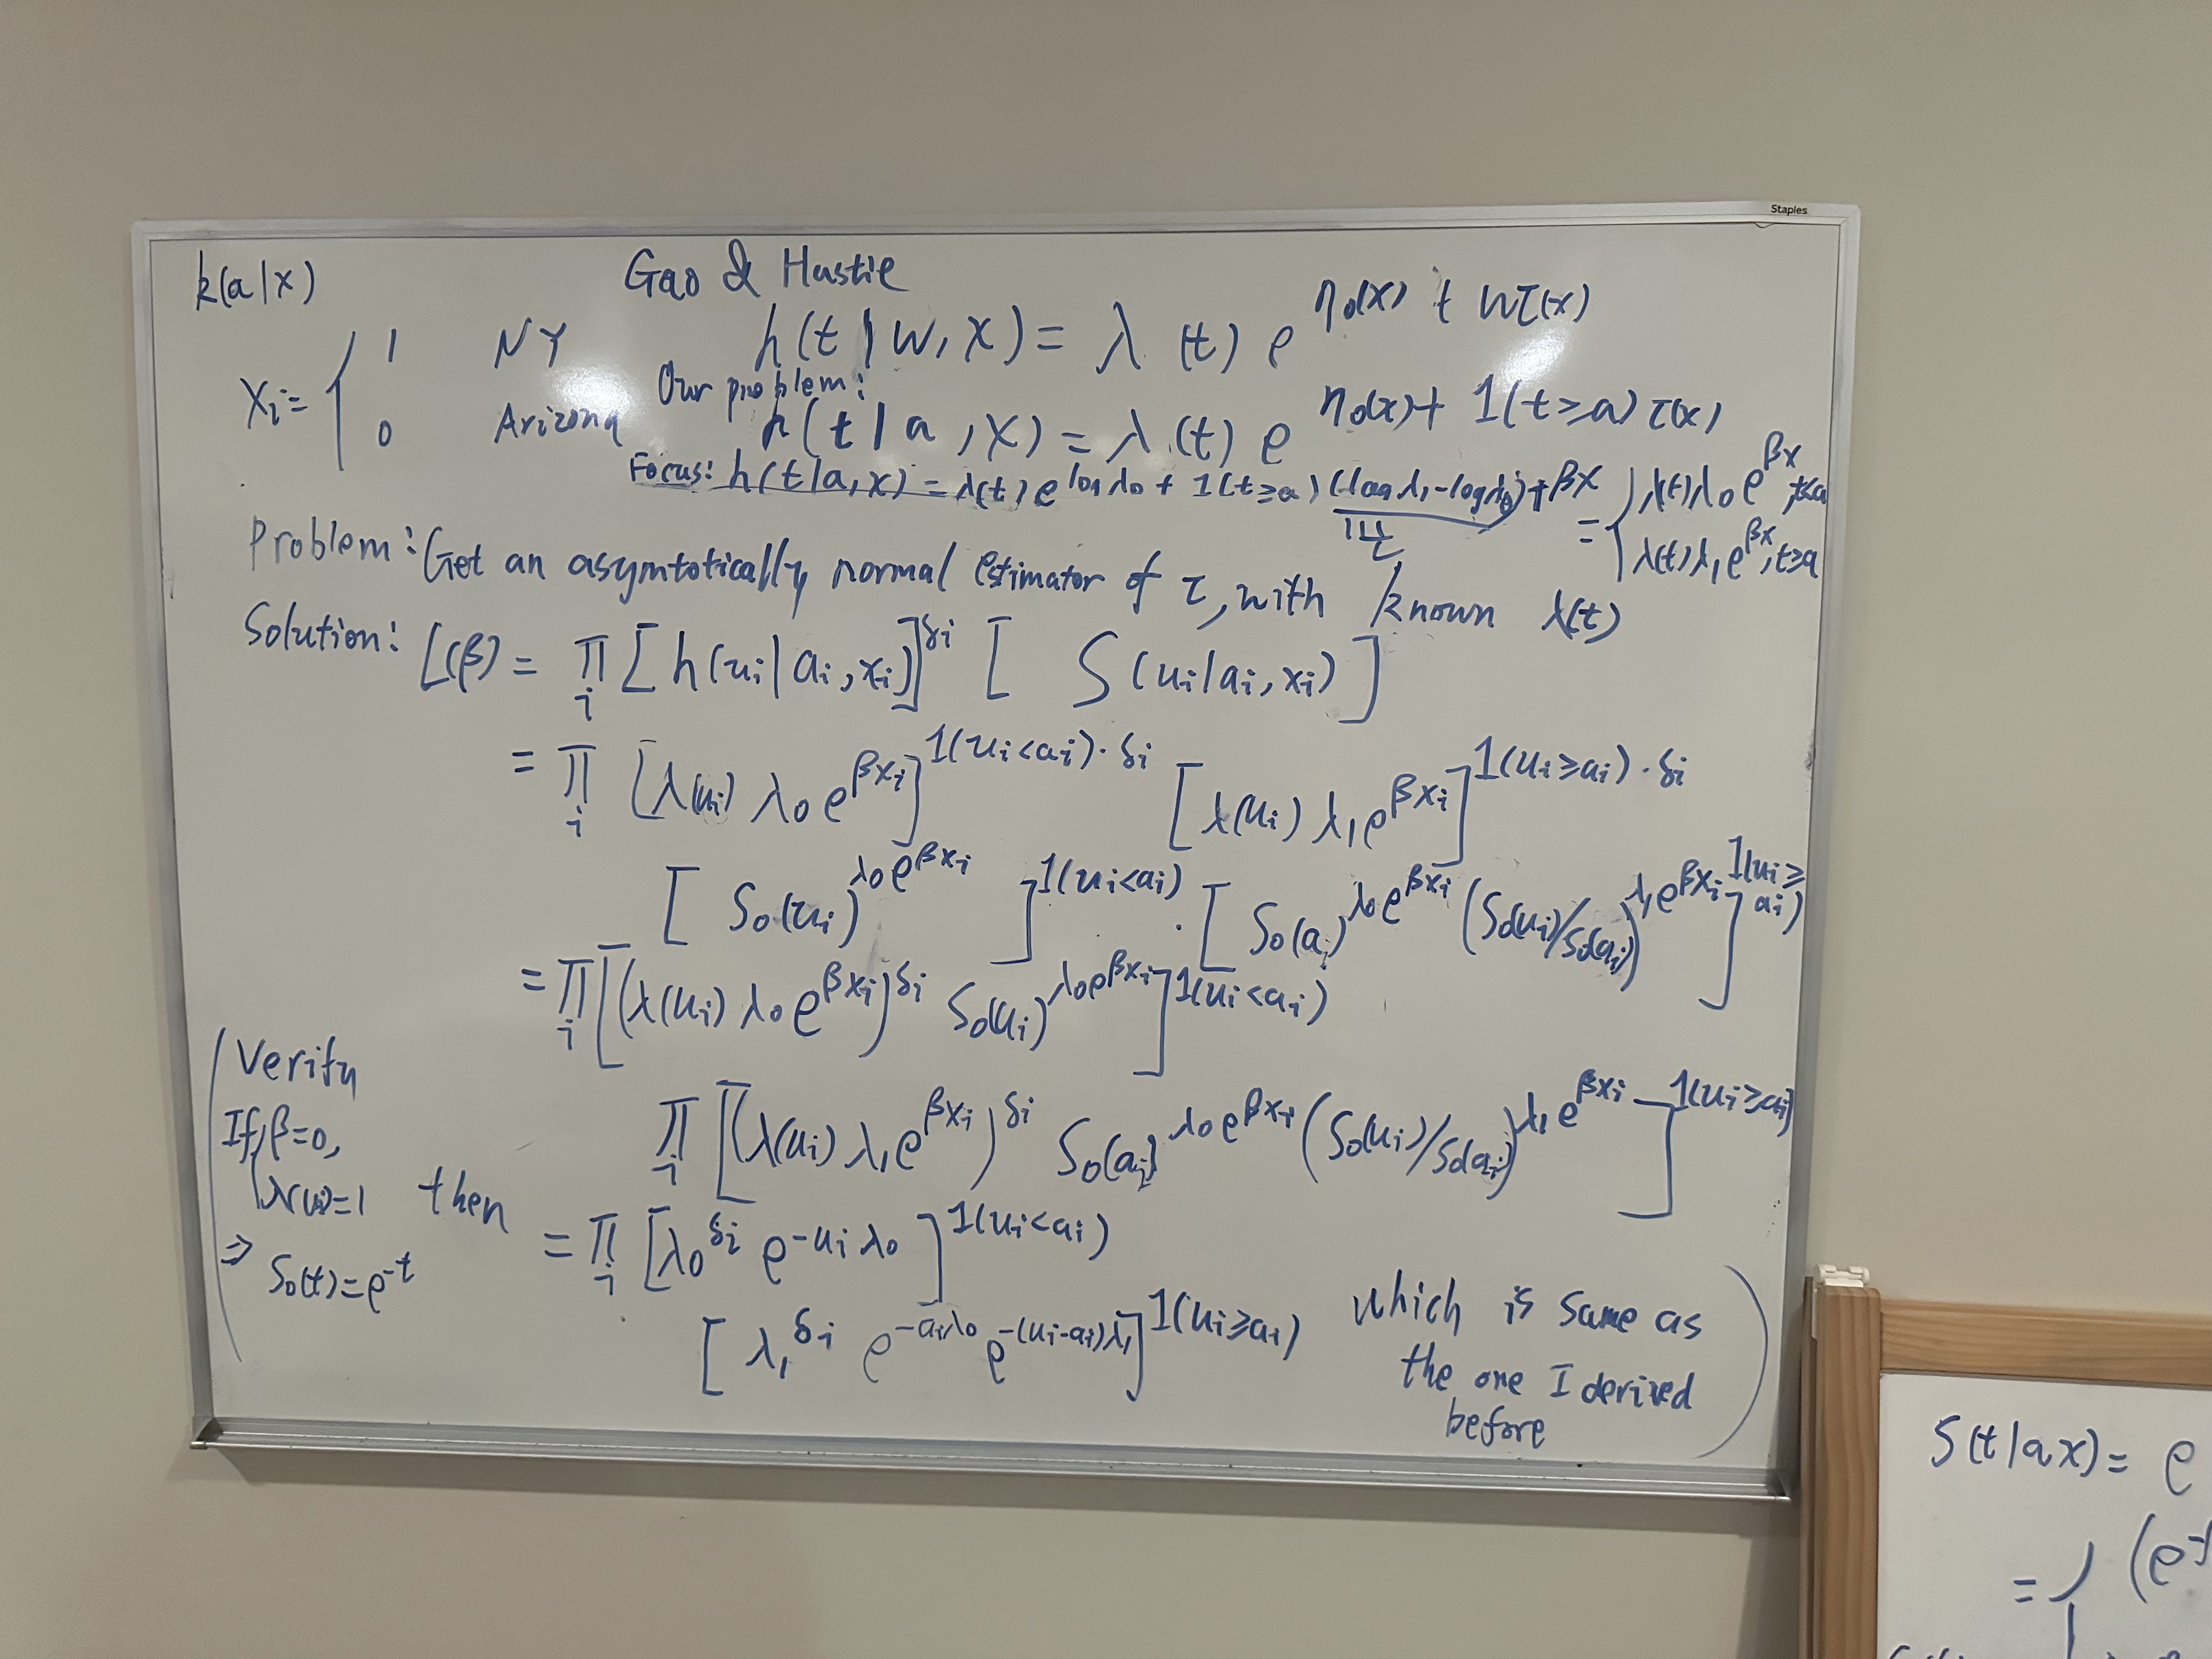 Staples
k(a|x)
Gao & Hastie
h(t|W,X) = λ(t) e^{η₀(x) + Wτ(x)}
Xᵢ = { 1 NY
0 Arizona
Our problem:
h(t|a,X) = λ(t) e^{η₀(x) + 1(t≥a) τ(x)}
Focus: h(t|a,x) = λ(t) e^{log λ₀ + 1(t≥a)(log λ₁ - log λ₀) + βX} = { λ(t) λ₀ e^{βX}, t<a
τ
λ(t) λ₁ e^{βX}, t≥a
Problem: Get an asymtotically normal estimator of τ, with known λ(t)
Solution: L(β) = ∏ᵢ [h(uᵢ|aᵢ,xᵢ)]^{δᵢ} [S(uᵢ|aᵢ,xᵢ)]
= ∏ᵢ [λ(uᵢ) λ₀ e^{βXᵢ}]^{1(uᵢ<aᵢ)·δᵢ} [λ(uᵢ) λ₁ e^{βXᵢ}]^{1(uᵢ≥aᵢ)·δᵢ}
[S₀(uᵢ)^{λ₀e^{βXᵢ}}]^{1(uᵢ<aᵢ)} · [S₀(aᵢ)^{λ₀e^{βXᵢ}} (S₀(uᵢ)/S₀(aᵢ))^{λ₁e^{βXᵢ}}]^{1(uᵢ≥aᵢ)}
= ∏ᵢ [(λ(uᵢ) λ₀ e^{βXᵢ})^{δᵢ} S₀(uᵢ)^{λ₀e^{βXᵢ}}]^{1(uᵢ<aᵢ)}
∏ᵢ [(λ(uᵢ) λ₁ e^{βXᵢ})^{δᵢ} S₀(aᵢ)^{λ₀e^{βXᵢ}} (S₀(uᵢ)/S₀(aᵢ))^{λ₁e^{βXᵢ}}]^{1(uᵢ≥aᵢ)}
(Verify
If β=0,
λ(u)=1 then
⇒ S₀(t)=e^{-t}
= ∏ᵢ [λ₀^{δᵢ} e^{-uᵢλ₀}]^{1(uᵢ<aᵢ)}
[λ₁^{δᵢ} e^{-aᵢλ₀} e^{-(uᵢ-aᵢ)λ₁}]^{1(uᵢ≥aᵢ)} which is same as
the one I derived
before)
S(t|a,x) = e
= { (e^-